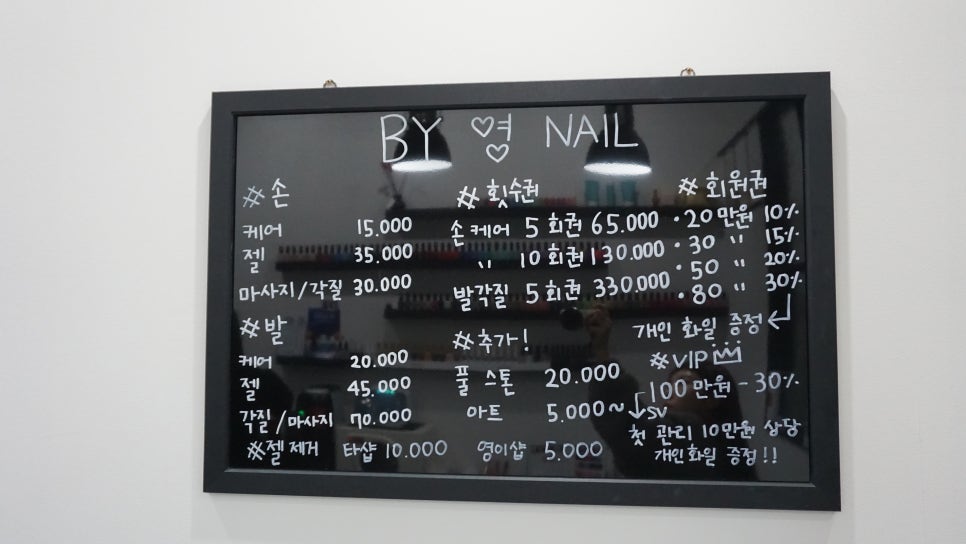 BY 영 NAIL
#손
케어 15.000
젤 35.000
마사지/각질 30.000
#발
케어 20.000
젤 45.000
각질/마사지 70.000
#젤 제거 타샵 10.000 영이샵 5.000
#횟수권
손케어 5회권 65.000
〃 10회권 130.000
발각질 5회권 330.000
#추가!
풀 스톤 20.000
아트 5.000~
#회원권
·20만원 10%
·30 〃 15%
·50 〃 20%
·80 〃 30%
개인 화일 증정
#VIP
100만원-30%
SV
첫 관리 10만원 상당
개인화일 증정!!